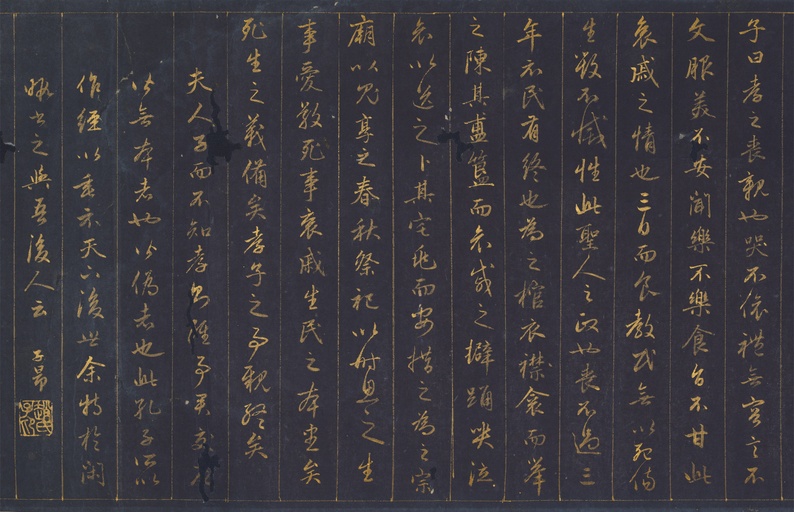 子曰孝之喪親也哭不偯禮無容言不
文服美不安聞樂不樂食旨不甘此
哀戚之情也三日而食教民無以死傷
生毀不滅性此聖人之政也喪不過三
年示民有終也為之棺衣襟衾而舉
之陳其簠簋而哀戚之擗踊哭泣
哀以送之卜其宅兆而安措之為之宗
廟以鬼享之春秋祭祀以時思之生
事愛敬死事哀戚生民之本盡矣
死生之義備矣孝子之事親終矣
夫人子而不知孝雖事君
皆無本者也皆偽者也此孔子所以
作經以垂示天下後世余特於閑
暇書之與吾後人云 子昂
趙氏子昂